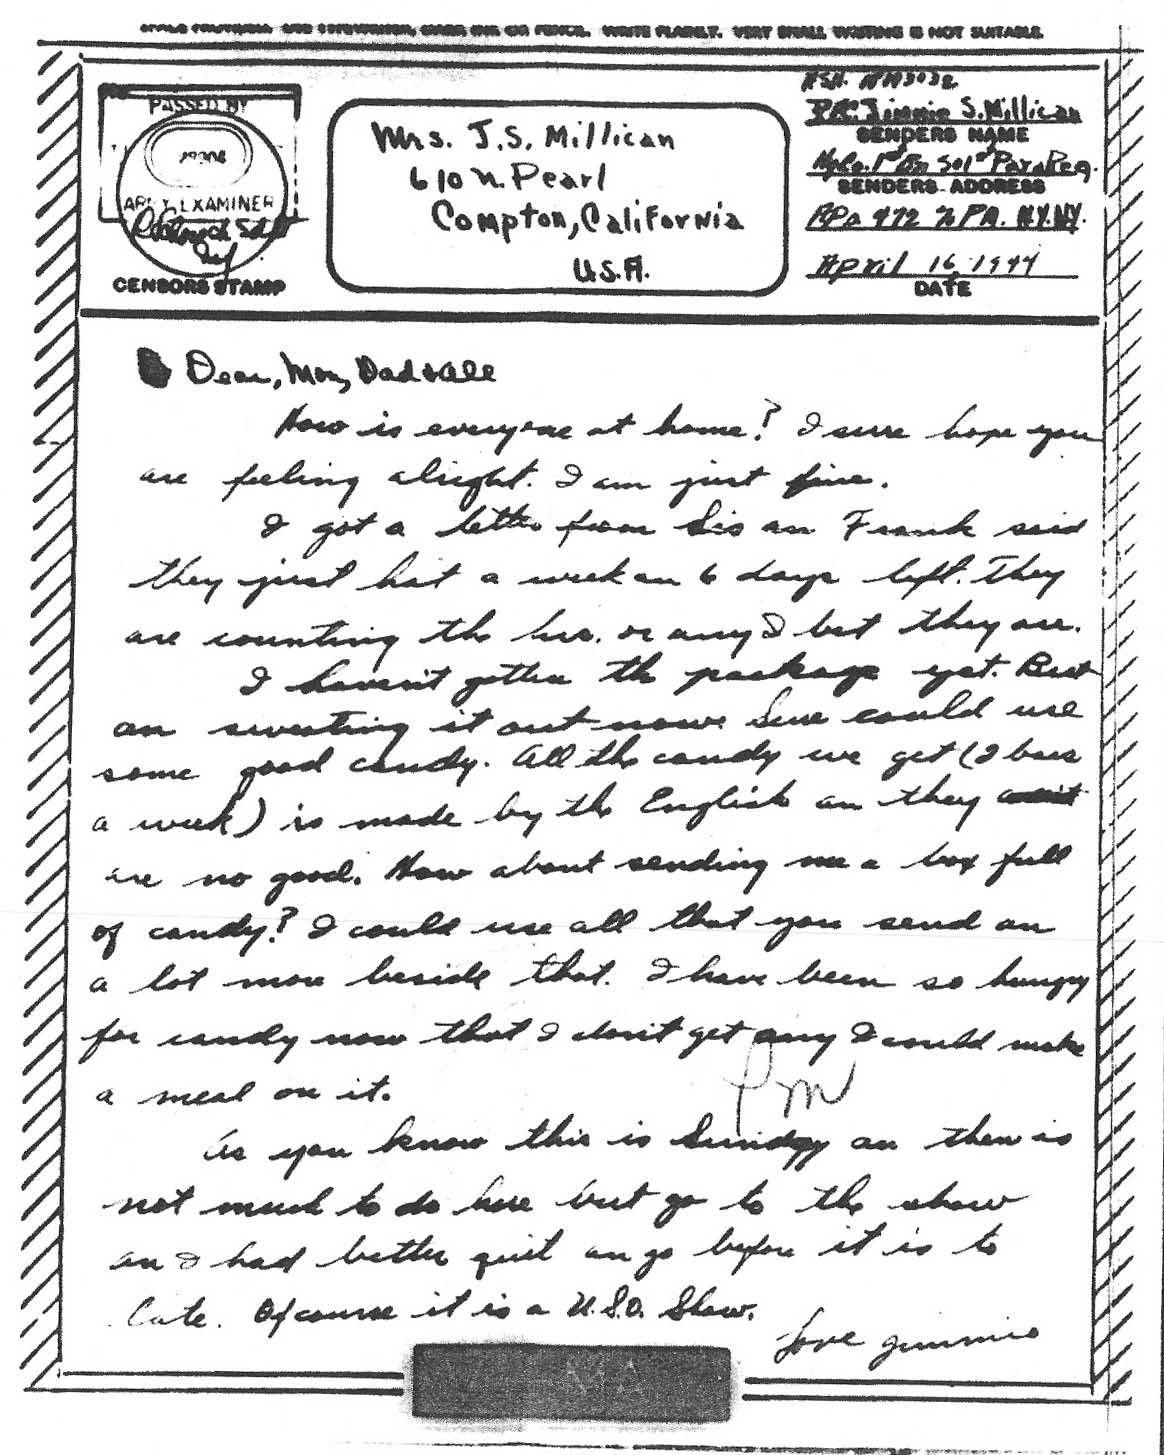 WRITE PLAINLY. VERY SMALL WRITING IS NOT SUITABLE.
PASSED BY
ARMY EXAMINER
CENSORS STAMP
Mrs. J.S. Millican
610 N. Pearl
Compton, California
U.S.A.
Pfc. Jimmie S. Millican
SENDERS NAME
Hq Co. 1st Bn 501st Para Reg.
SENDERS ADDRESS
APO 472 % PM. N.Y. NY.
April 16, 1944
DATE
Dear, Mom, Dad & All
How is everyone at home? I sure hope you
are feeling alright. I am just fine.
I got a letter from Sis an Frank said
they just hat a week an 6 days left. They
are counting the hrs. or any I bet they are.
I haven't gotten the package yet. But
am sweating it out now. Sure could use
some good candy. All the candy we get (2 bars
a week) is made by the English an they
are no good. How about sending me a box full
of candy? I could use all that you send an
a lot more beside that. I have been so hungry
for candy now that I don't get any I could make
a meal on it.
As you know this is Sunday an there is
not much to do here but go to the show
an I had better quit an go before it is to
late. Of course it is a U.S.O. Show.
Love Jimmie